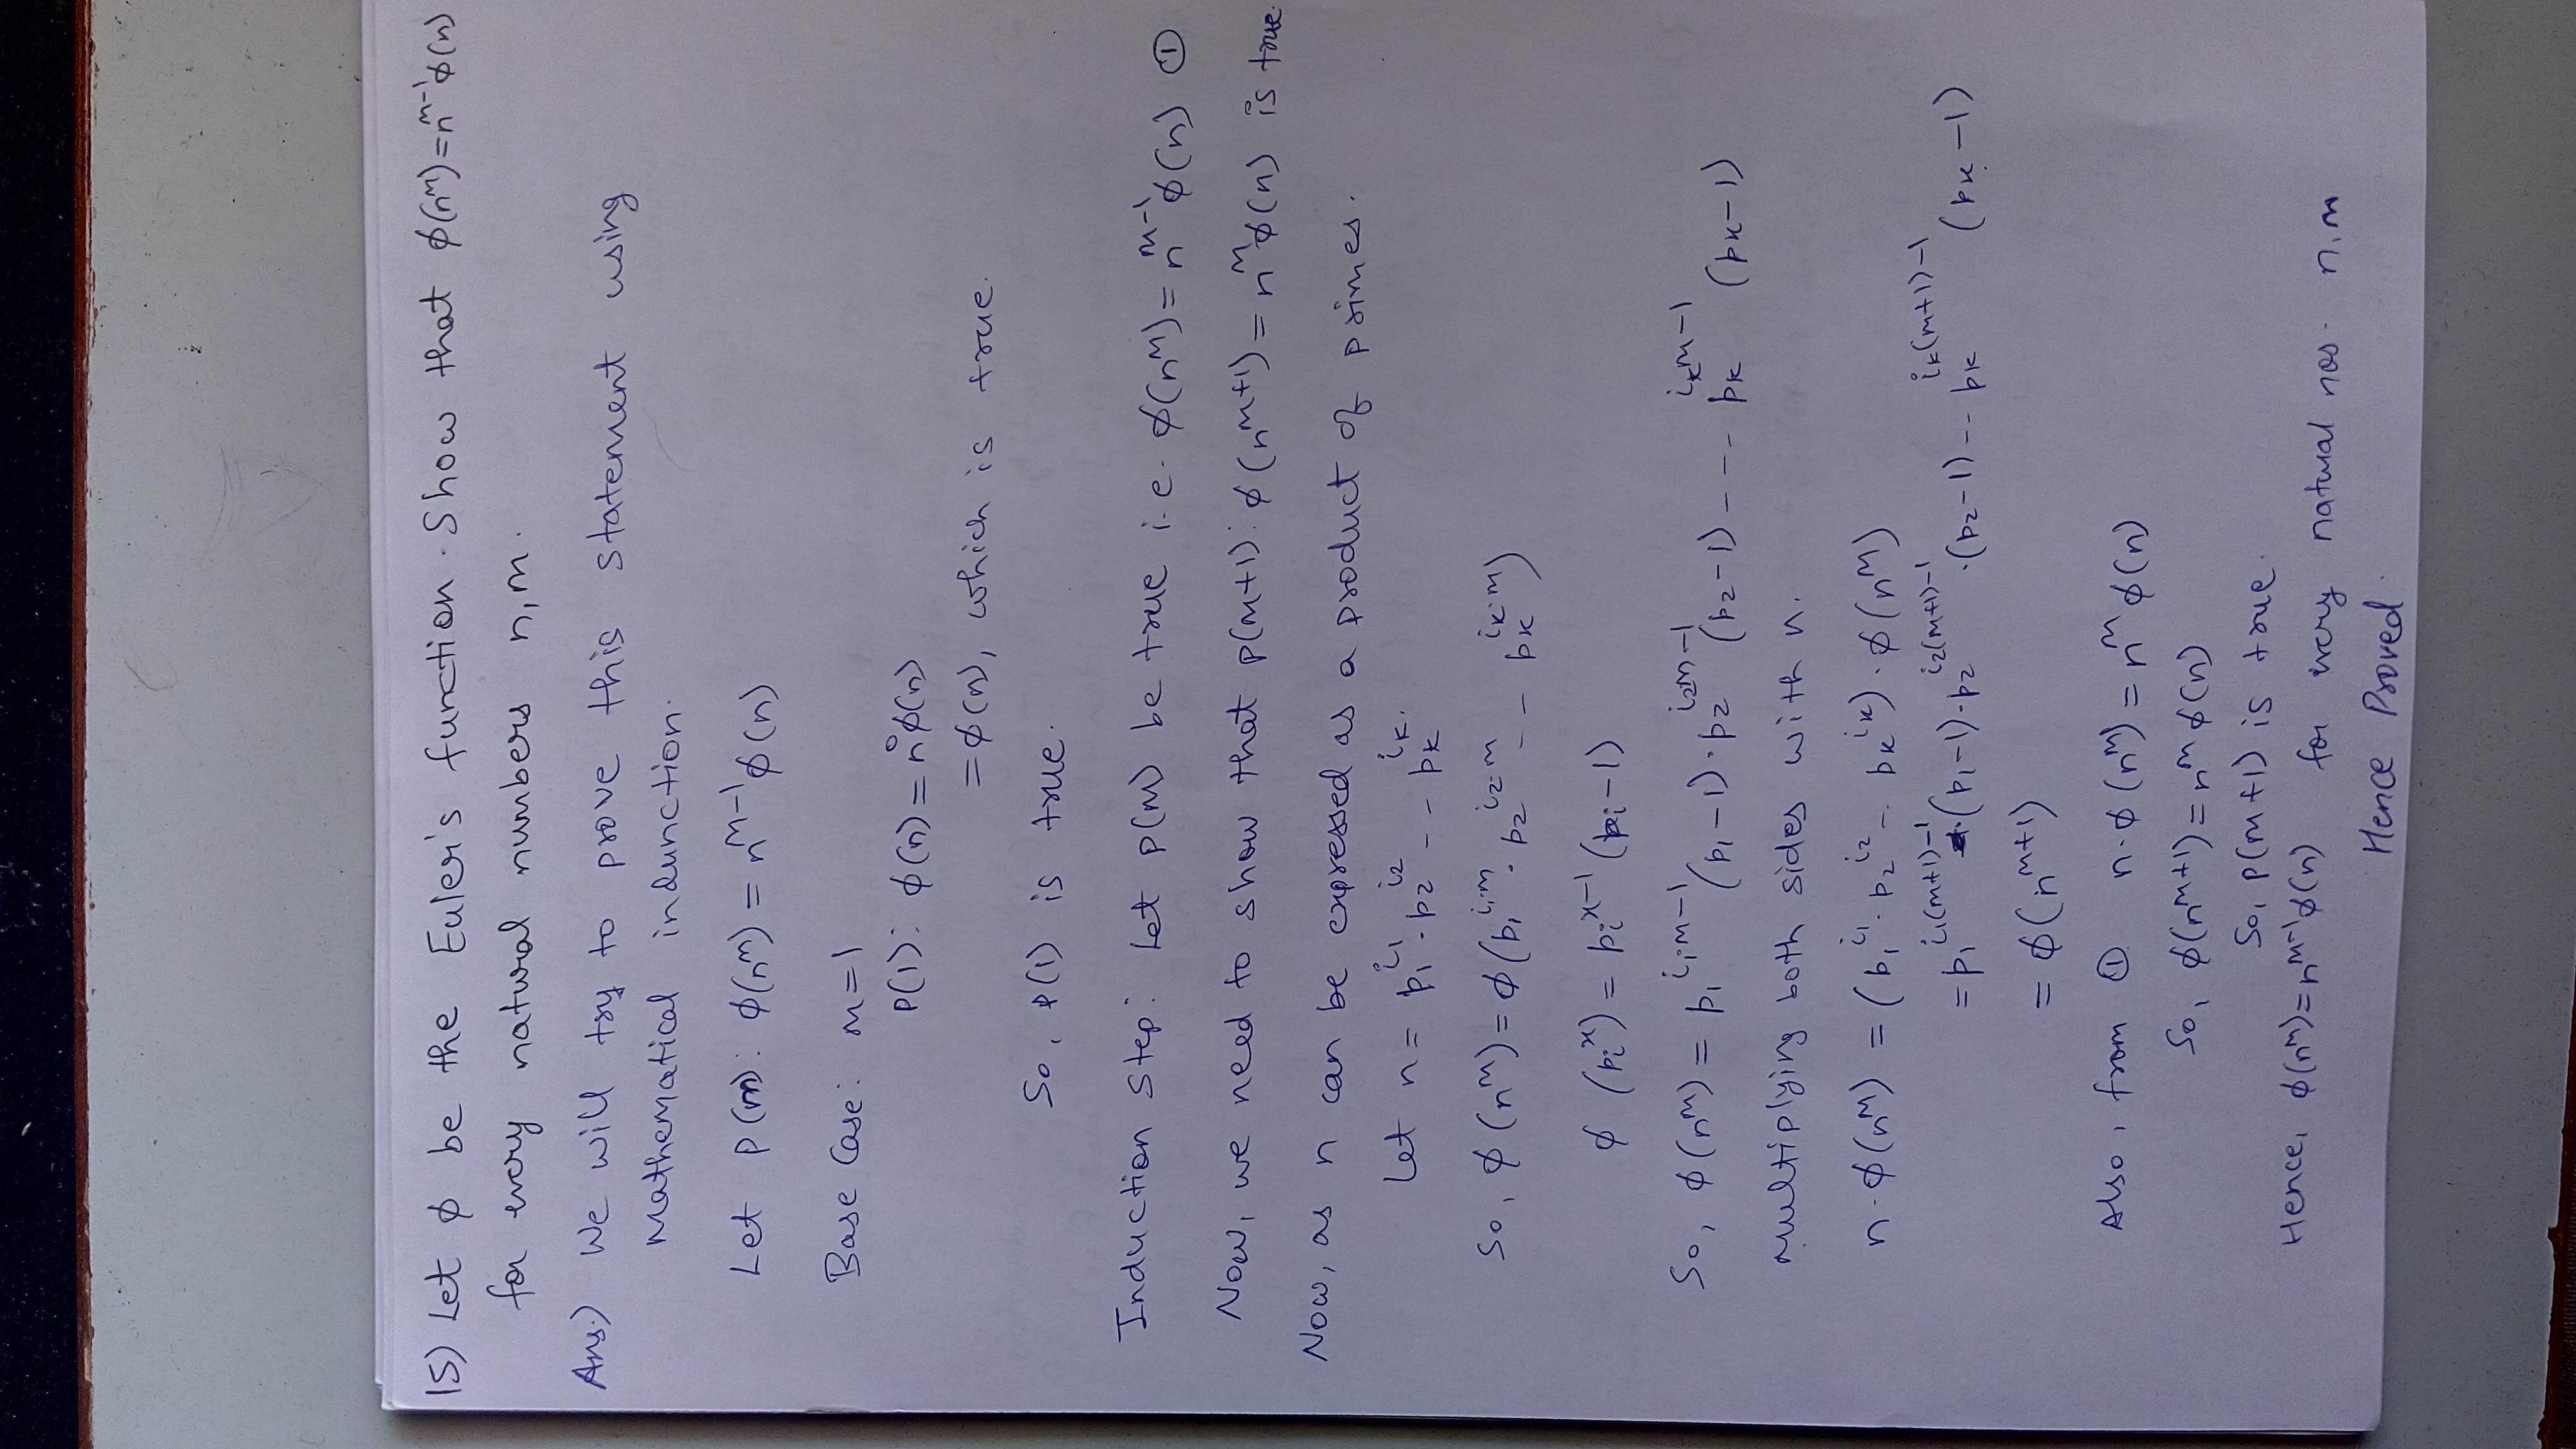 15) Let ϕ be the Euler's function. Show that ϕ(n^m)=n^{m-1}ϕ(n)
for every natural numbers n,m.
Ans.) We will try to prove this statement using
Mathematical indunction.
Let P(m): ϕ(n^m) = n^{m-1}ϕ(n)
Base Case: m=1
P(1): ϕ(n) = n^0ϕ(n)
=ϕ(n), which is true.
So, P(1) is true.
Induction Step: Let P(m) be true i.e. ϕ(n^m) = n^{m-1}ϕ(n) ①
Now, we need to show that P(m+1): ϕ(n^{m+1}) = n^mϕ(n) is true.
Now, as n can be expressed as a product of primes.
Let n = p_1^{i_1}.p_2^{i_2} -- p_k^{i_k}.
So, ϕ(n^m) = ϕ(p_1^{i_1.m}. p_2^{i_2.m} -- p_k^{i_k.m})
ϕ (p_i^x) = p_i^{x-1} (p_i-1)
So, ϕ(n^m) = p_1^{i_1.m-1} (p_1-1).p_2^{i_2m-1} (p_2-1) --- p_k^{i_km-1} (p_k-1)
Multiplying both sides with n.
n.ϕ(n^m) = (p_1^{i_1}. p_2^{i_2} -- p_k^{i_k}).ϕ(n^m)
= p_1^{i_1(m+1)-1} .(p_1-1).p_2^{i_2(m+1)-1} .(p_2-1) -- p_k^{i_k(m+1)-1} (p_k-1)
= ϕ(n^{m+1})
Also, from ① n.ϕ(n^m) = n^m ϕ(n)
So, ϕ(n^{m+1}) = n^m ϕ(n)
So, P(m+1) is true.
Hence, ϕ(n^m)=n^{m-1}ϕ(n) for every natural nos. n,m
Hence Proved.